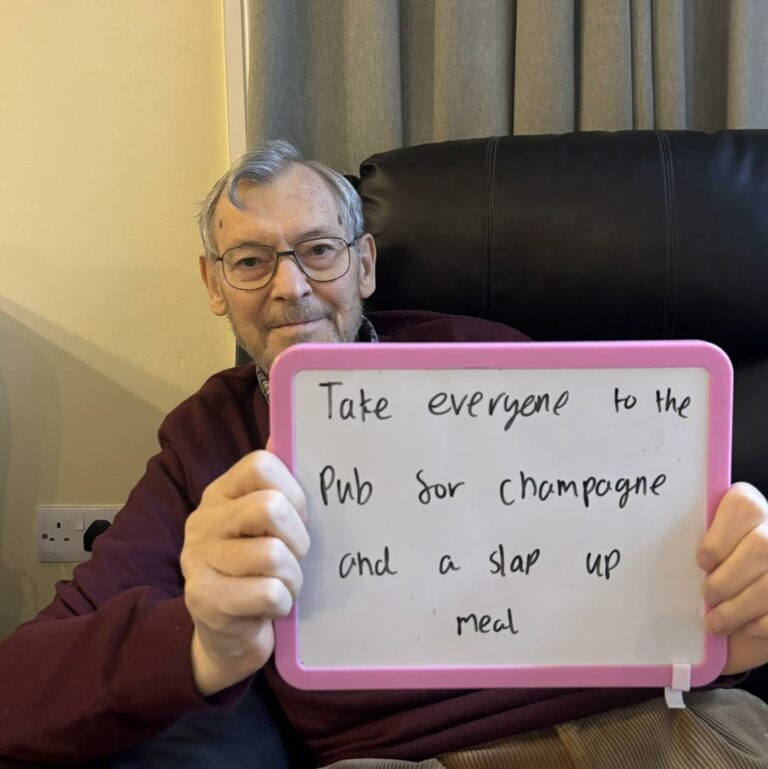 Take everyone to the
Pub for champagne
and a slap up
meal